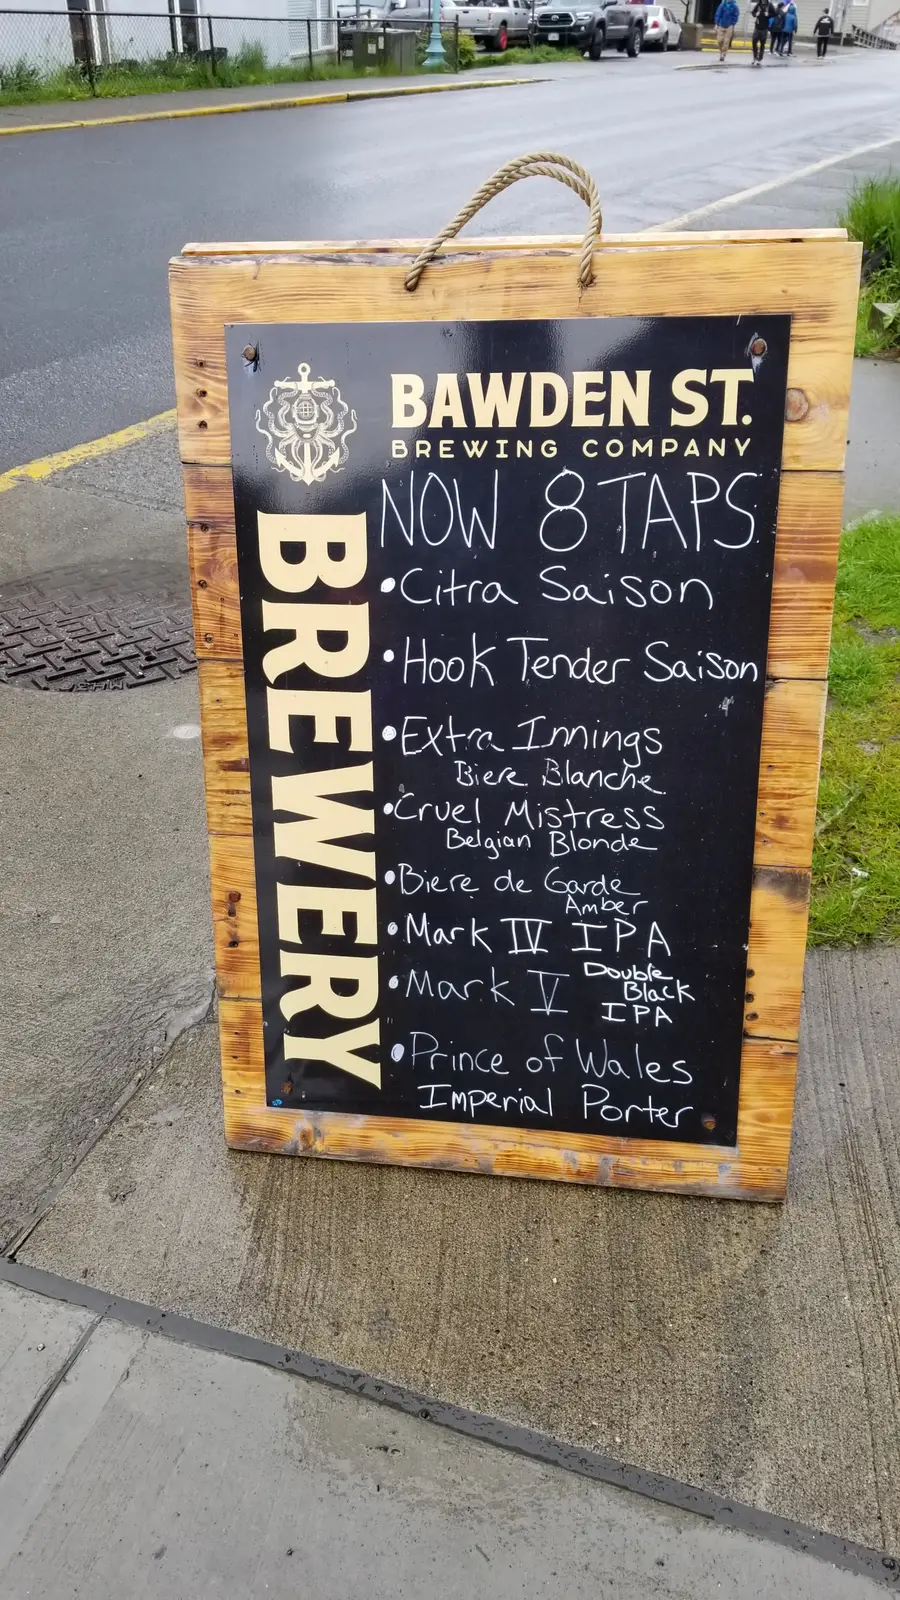 BAWDEN ST.
BREWING COMPANY
BREWERY
NOW 8 TAPS
• Citra Saison
• Hook Tender Saison
• Extra Innings
Biere Blanche
• Cruel Mistress
Belgian Blonde
• Biere de Garde
Amber
• Mark IV IPA
• Mark V Double
Black
IPA
• Prince of Wales
Imperial Porter